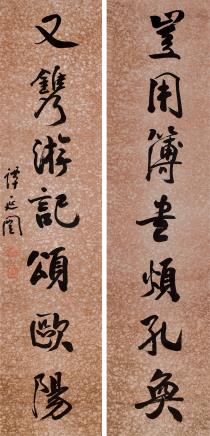 豈用簿書煩孔奐
又鐫游記頌歐陽
譚延闓